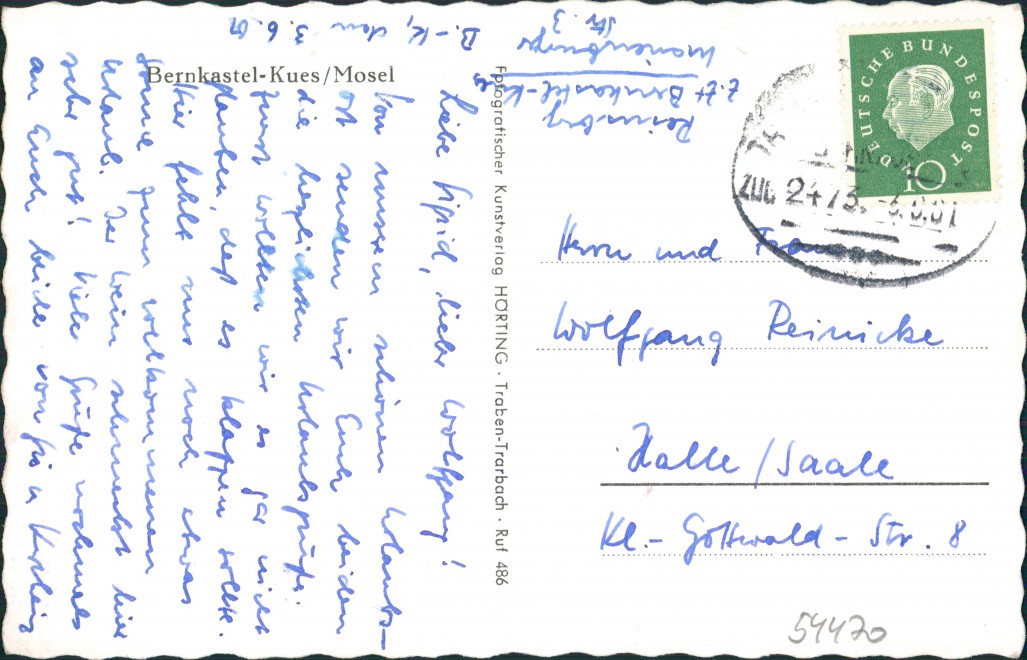 Bernkastel-Kues/Mosel
B.-K., den 3.6.61
Liebe Sigrid, lieber Wolfgang!
Von unserem schönen Urlaubs-
ort senden wir Euch beiden
die herzlichsten Urlaubsgrüße.
Zuerst wollten wir es gar nicht
glauben, daß es klappen sollte.
Hier fehlt uns noch etwas
Sonne zum vollkommenen
Urlaub. Der Wein schmeckt hier
sehr gut! Viele Grüße nochmals
an Euch beide von
Fotografischer Kunstverlag HÖRTING · Traben-Trarbach · Ruf 486
z.Zt. Bernkastel-Kues
Str. 3
DEUTSCHE BUNDESPOST
10
ZUG 2473
Herrn und Frau
Wolfgang Reinicke
Halle/Saale
Kl.-Gottwald-Str. 8
54470